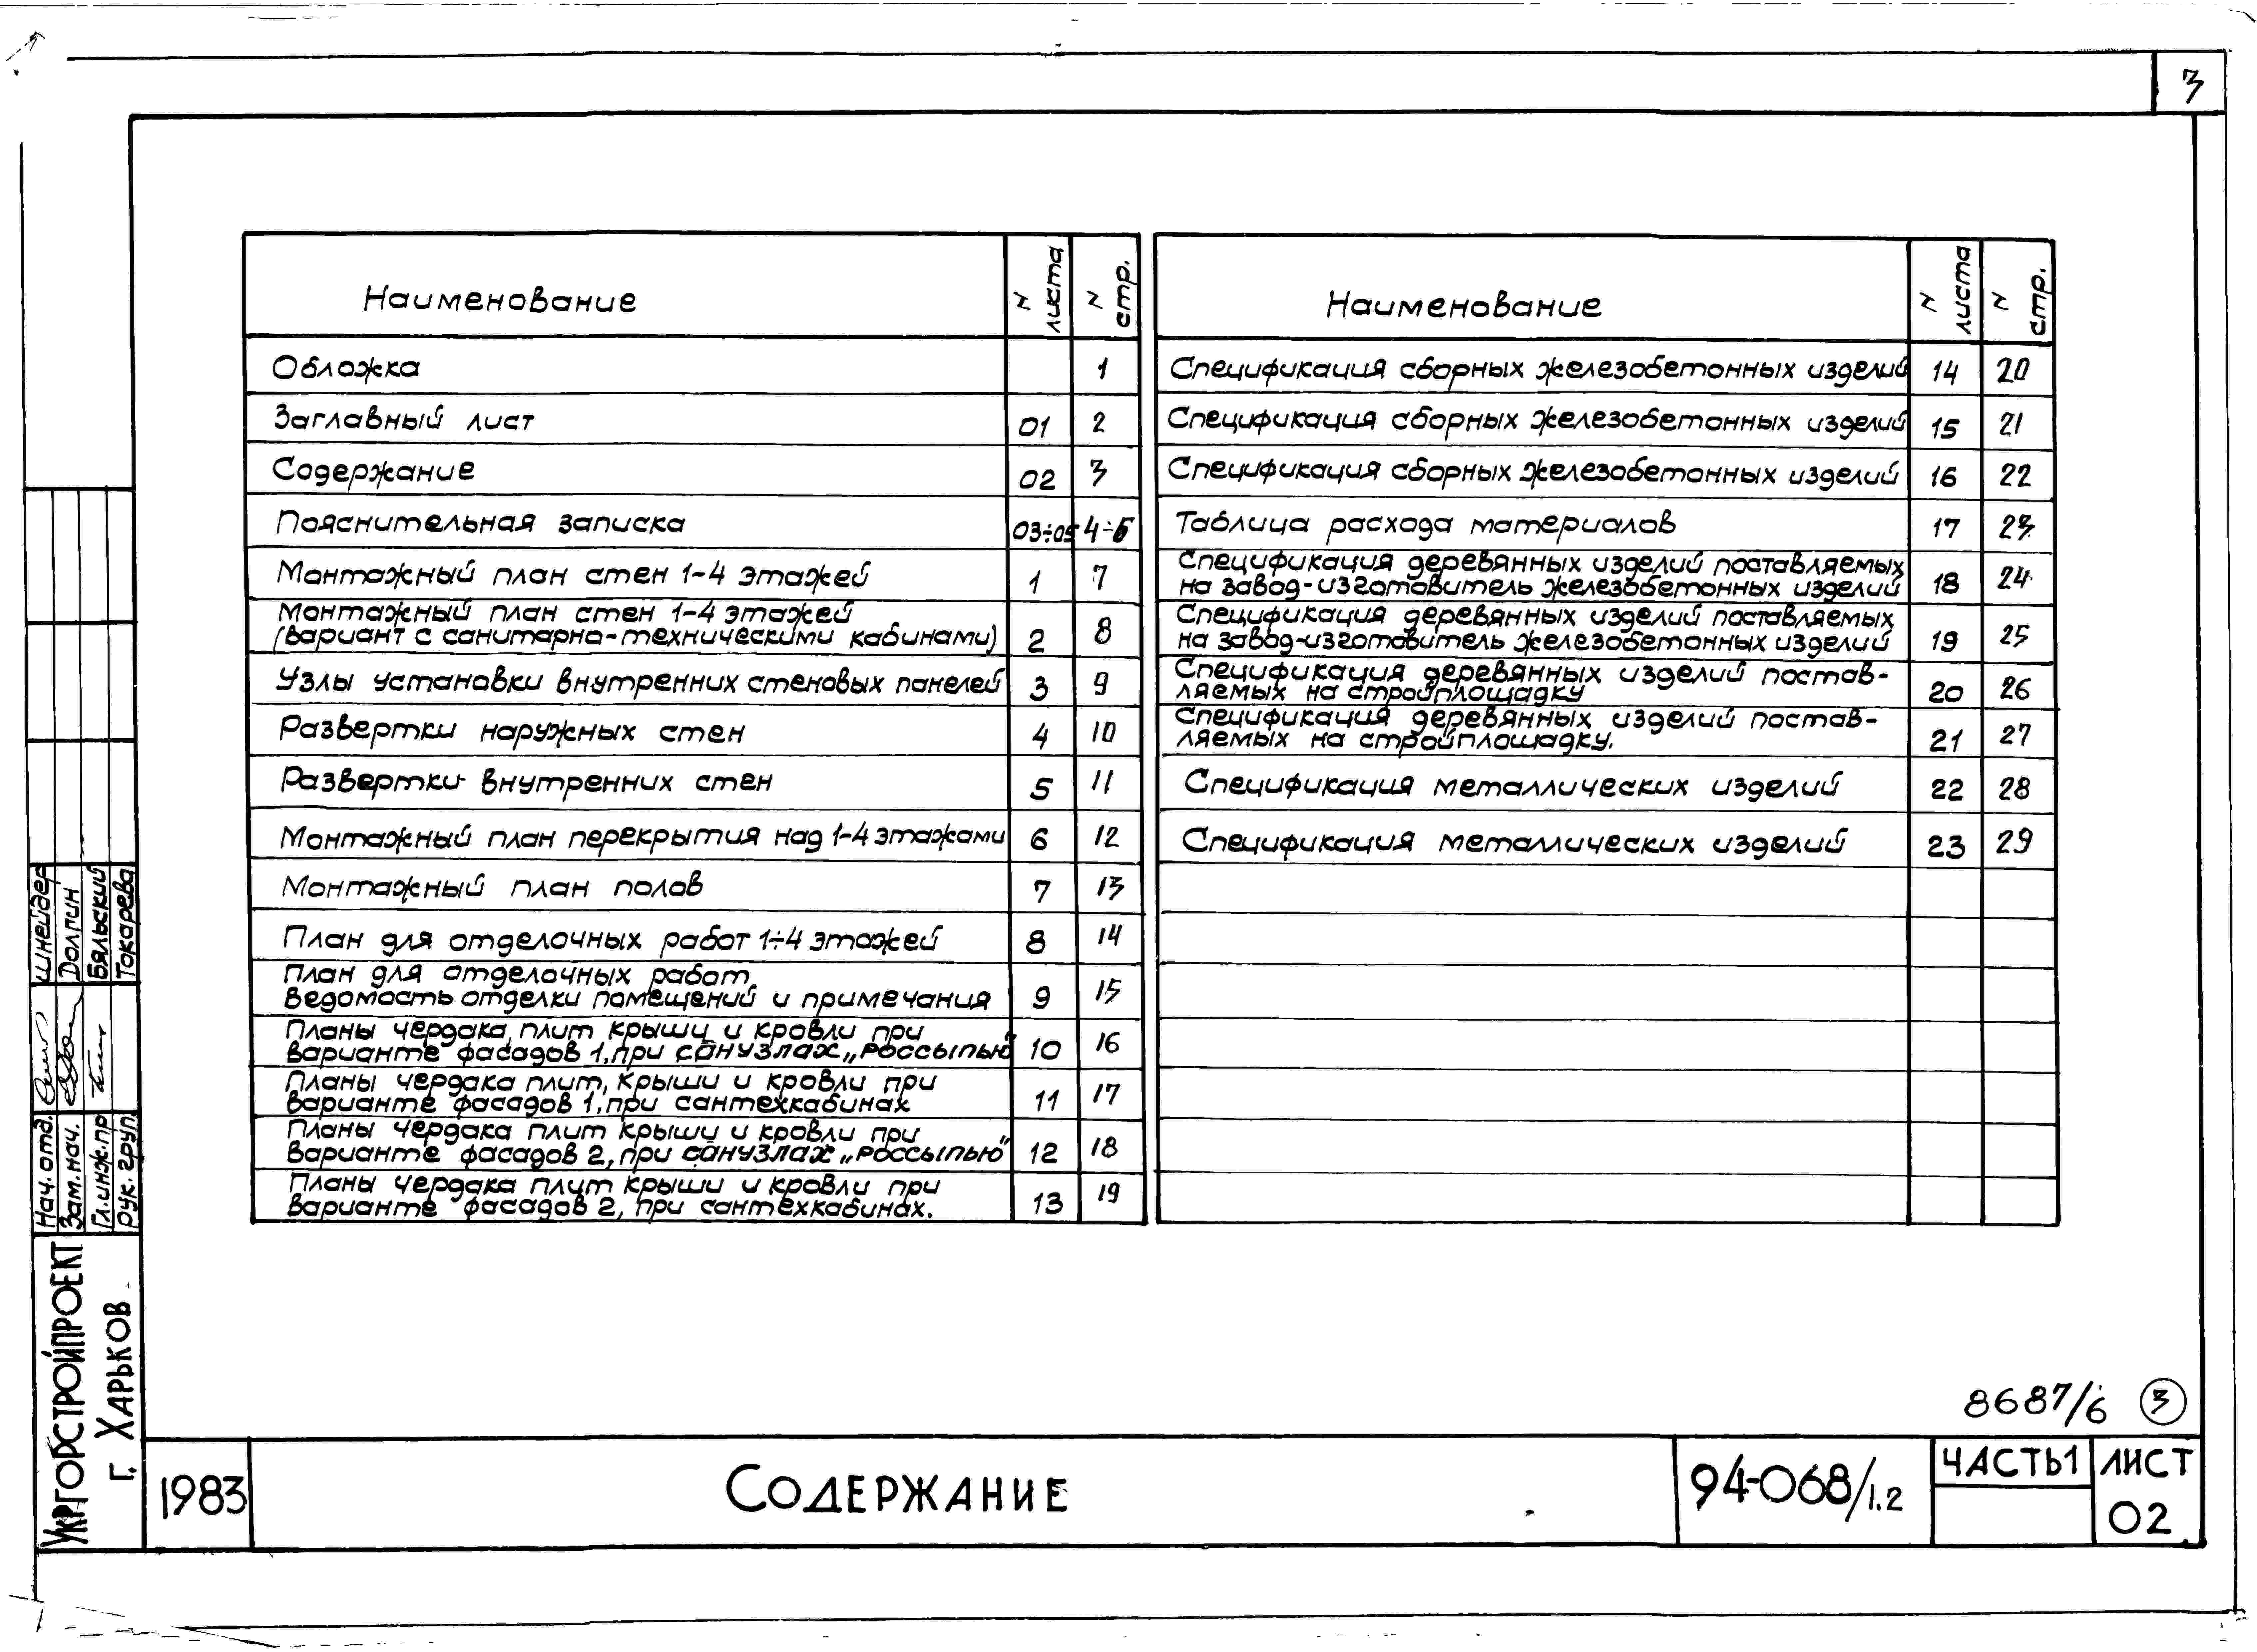 3
Наименование
N листа
N стр.
Обложка 1
Заглавный лист 01 2
Содержание 02 3
Пояснительная записка 03÷05 4÷6
Монтажный план стен 1-4 этажей 1 7
Монтажный план стен 1-4 этажей
(вариант с санитарно-техническими кабинами) 2 8
Узлы установки внутренних стеновых панелей 3 9
Развертки наружных стен 4 10
Развертки внутренних стен 5 11
Монтажный план перекрытия над 1-4 этажами 6 12
Монтажный план полов 7 13
План для отделочных работ 1÷4 этажей 8 14
План для отделочных работ.
Ведомость отделки помещений и примечания 9 15
Планы чердака, плит крыши и кровли при
варианте фасадов 1, при санузлах „россыпью" 10 16
Планы чердака плит, крыши и кровли при
варианте фасадов 1, при сантехкабинах 11 17
Планы чердака плит крыши и кровли при
варианте фасадов 2, при санузлах „россыпью" 12 18
Планы чердака плит крыши и кровли при
варианте фасадов 2, при сантехкабинах. 13 19
Наименование
N листа
N стр.
Спецификация сборных железобетонных изделий 14 20
Спецификация сборных железобетонных изделий 15 21
Спецификация сборных железобетонных изделий 16 22
Таблица расхода материалов 17 23
Спецификация деревянных изделий поставляемых
на завод-изготовитель железобетонных изделий 18 24
Спецификация деревянных изделий поставляемых
на завод-изготовитель железобетонных изделий 19 25
Спецификация деревянных изделий постав-
ляемых на стройплощадку 20 26
Спецификация деревянных изделий постав-
ляемых на стройплощадку. 21 27
Спецификация металлических изделий 22 28
Спецификация металлических изделий 23 29
Нач. отд. Шнейдер
Зам. нач. Долгин
Гл. инж. пр Бяльский
Рук. груп. Токарева
УКРГОРСТРОЙПРОЕКТ
г. ХАРЬКОВ
8687/6 3
1983
СОДЕРЖАНИЕ
94-068/1.2
ЧАСТЬ 1
ЛИСТ
02